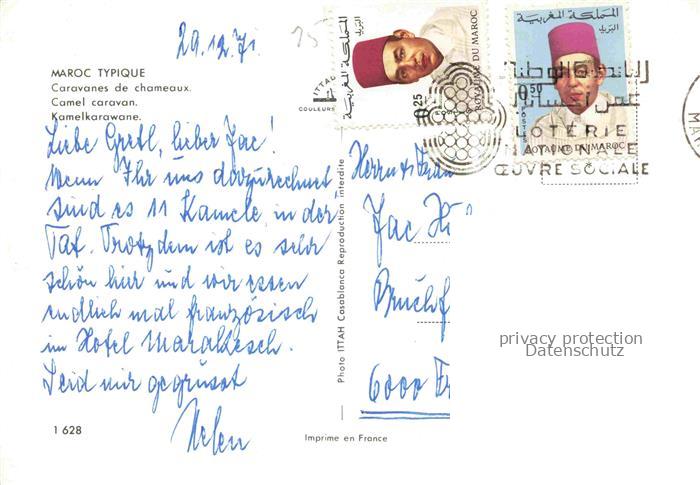 29.12.71
MAROC TYPIQUE
Caravanes de chameaux.
Camel caravan.
Kamelkarawane.
Liebe Gretl, lieber Jac!
Wenn Ihr uns dazurechnet
sind es 11 Kamele, in der
Tat. Trotzdem ist es sehr
schön hier und wir essen
endlich mal französisch
im Hotel Marakesch.
Seid mir gegrüsst
Helen
1 628
Imprime en France
Photo ITTAH Casablanca Reproduction interdite
ITTAH
COULEURS
Herrn & Frau
Jac
6000
المملكة المغربية
البريد
0.25
ROYAUME DU MAROC
المملكة المغربية
البريد
0.50
POSTES
ROYAUME DU MAROC
LOTERIE
NATIONALE
ŒUVRE SOCIALE
privacy protection
Datenschutz